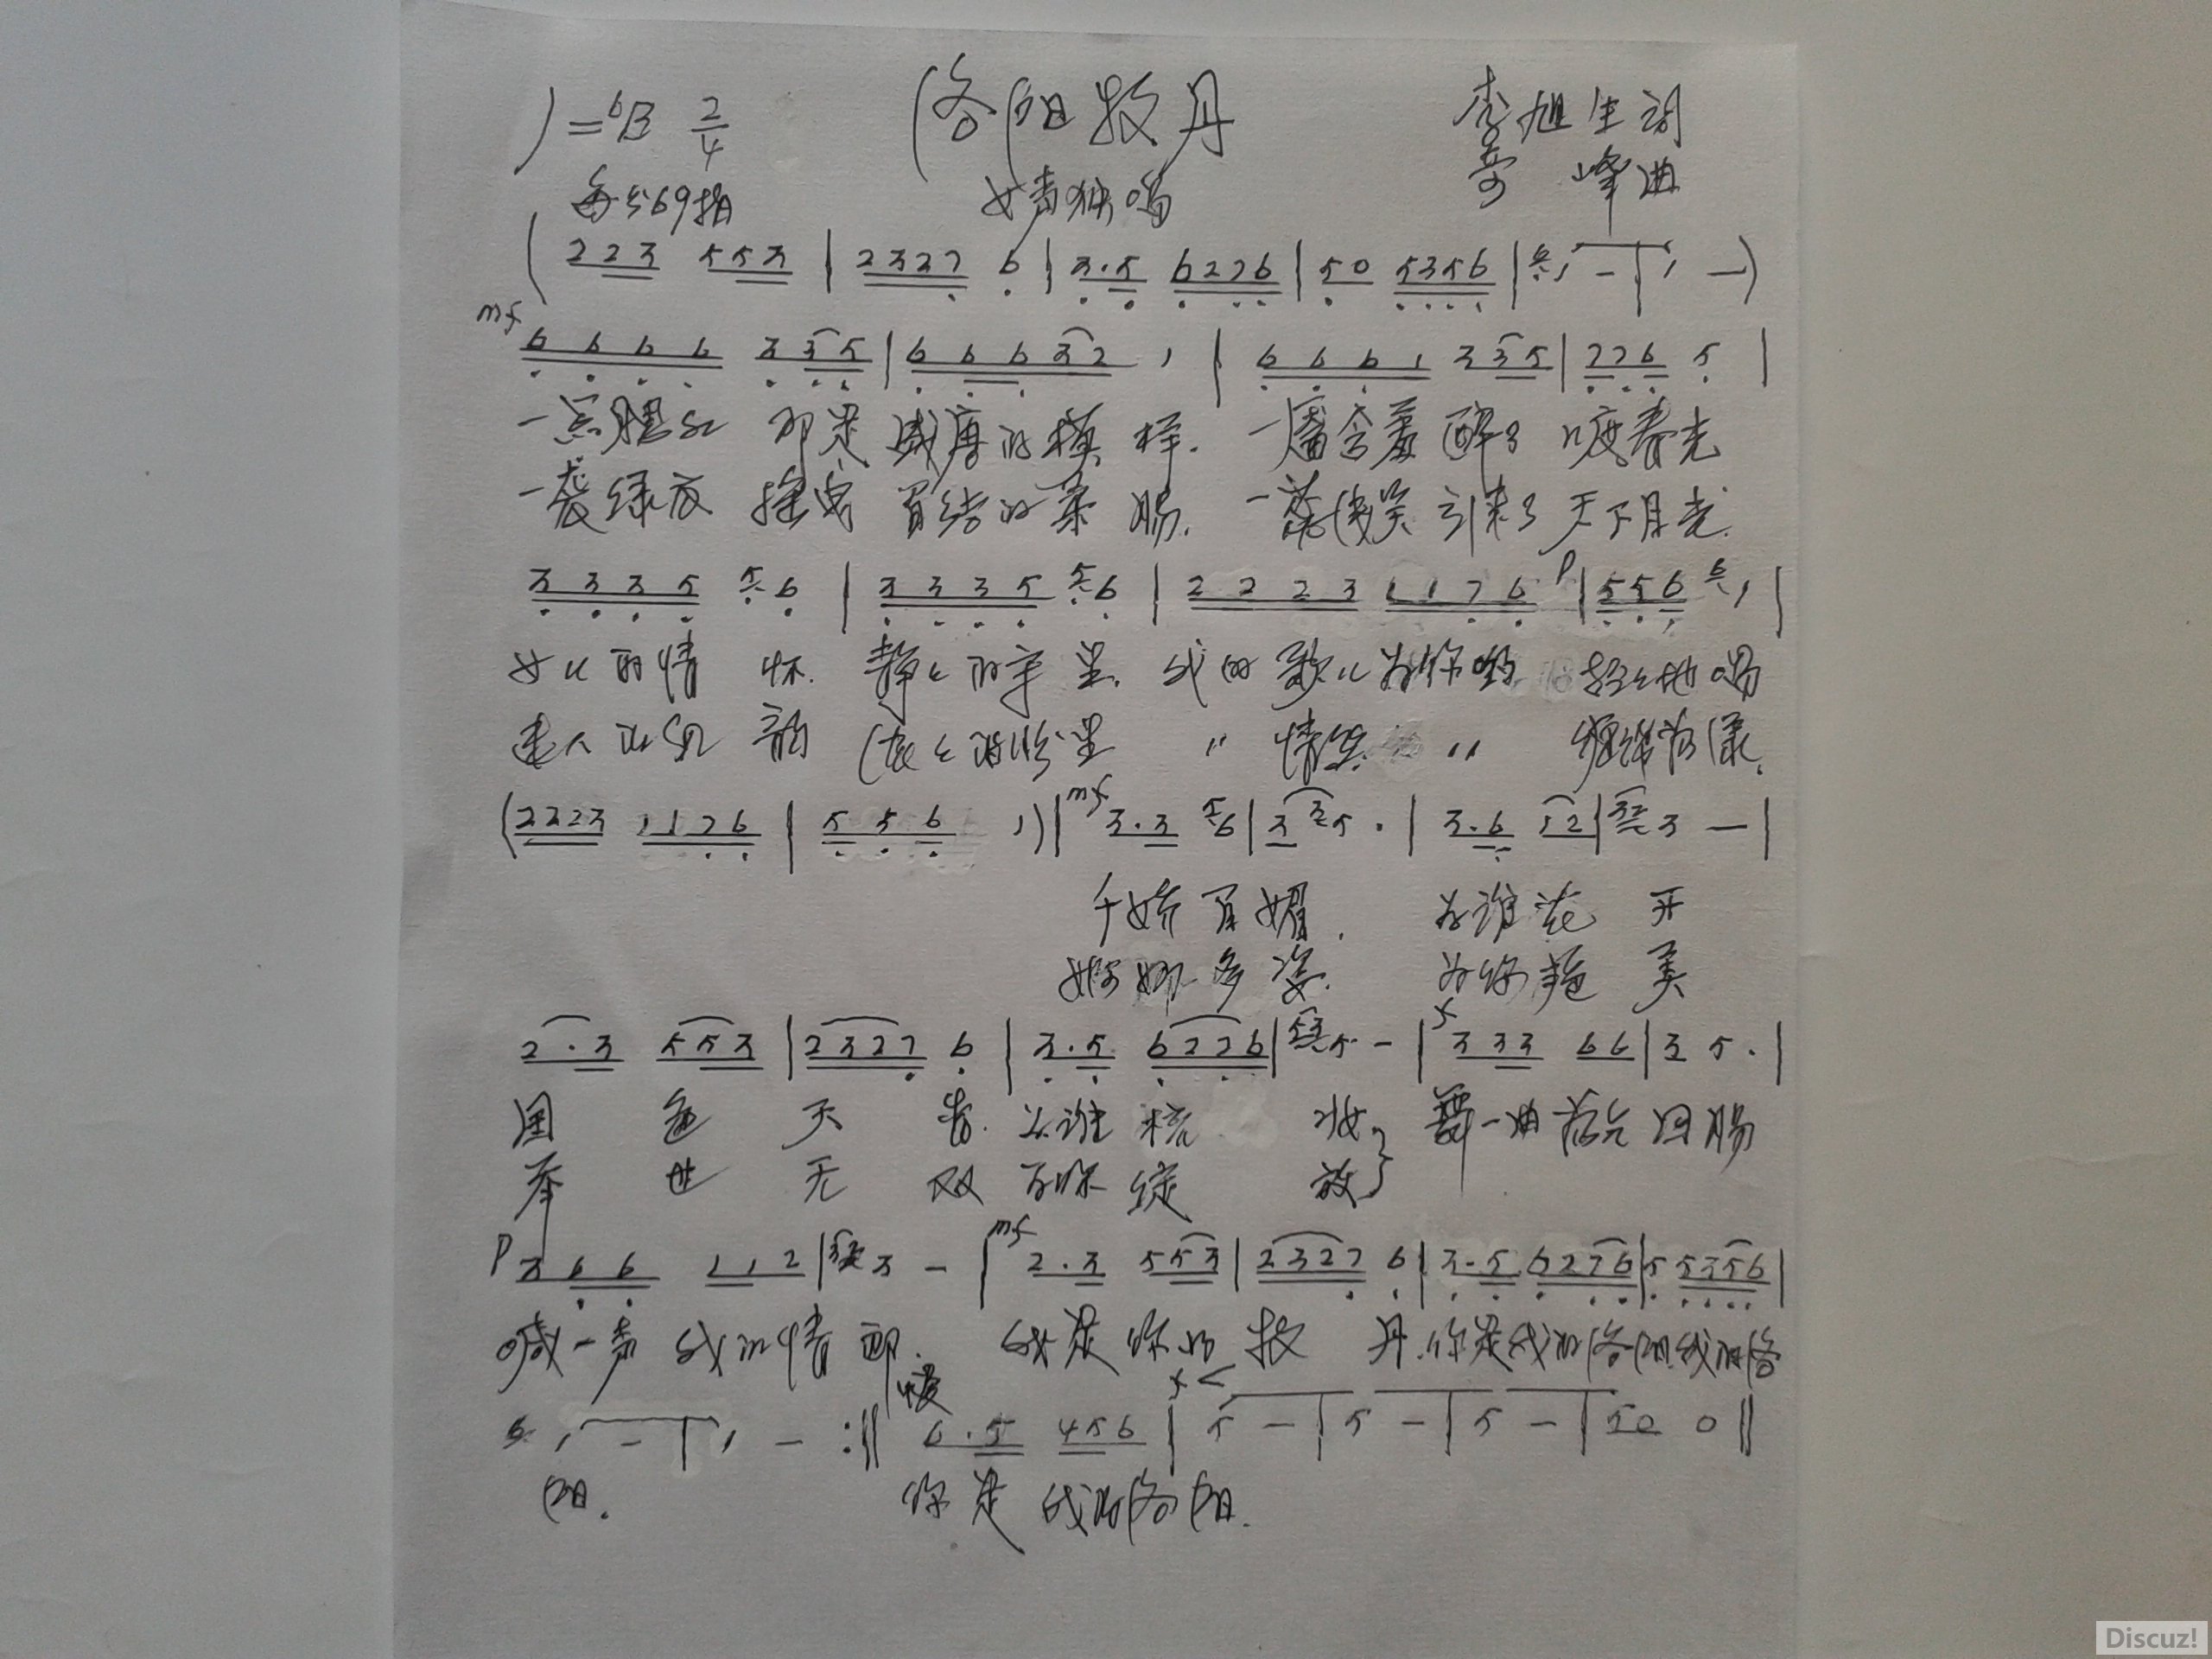 1=bB 2/4 洛阳牡丹 李旭生词
每分69拍 女声独唱 峰曲
( 2 2 3 5 5 3 | 2 3 2 7 6 | 3 · 5 6 2 7 6 | 5 0 5 3 5 6 | 6 1 – | 1 – )
mf 6 6 6 6 3 3 5 | 6 6 6 3 2 1 | 6 6 6 1 3 3 5 | 7 7 6 5 |
一点胭红 那是盛唐的模样. 一 含羞 醉了 春光
一袭绿衣 摇曳 百结的柔肠. 一 微笑 引来了天下目光.
3 3 3 5 5 6 | 3 3 3 5 5 6 | 2 2 2 3 1 1 7 6 p | 5 5 6 6 1 |
女儿的情怀. 静静的守望. 我的歌儿为你哟 轻轻地唱
迷人的 韵 的 〃 情 〃
( 2 2 2 3 1 1 7 6 | 5 5 6 1 ) | mf 3 · 3 5 6 | 3 2 5 · | 3 · 6 1 2 | 3 – |
千娇百媚. 为谁花开
婀娜多姿. 为你艳美
2 · 3 5 5 3 | 2 3 2 7 6 | 3 · 5 6 2 7 6 | 5 – | f 3 3 3 6 6 | 3 5 · |
国色天香. 为谁梳妆} 舞一曲荡气回肠
举世无双 为你绽放}
p 3 6 6 1 1 2 | 3 – | mf 2 · 3 5 5 3 | 2 3 2 7 6 | 3 · 5 6 2 7 6 | 5 5 3 5 6 |
喊一声我的情郎. 我是你的牡丹.你是我的洛阳.我的洛
6 1 – | 1 – :|| 慢 6 · 5 4 5 6 | f < 5 – | 5 – | 5 – | 5 0 0 ||
阳. 你是我的洛阳.
Discuz!